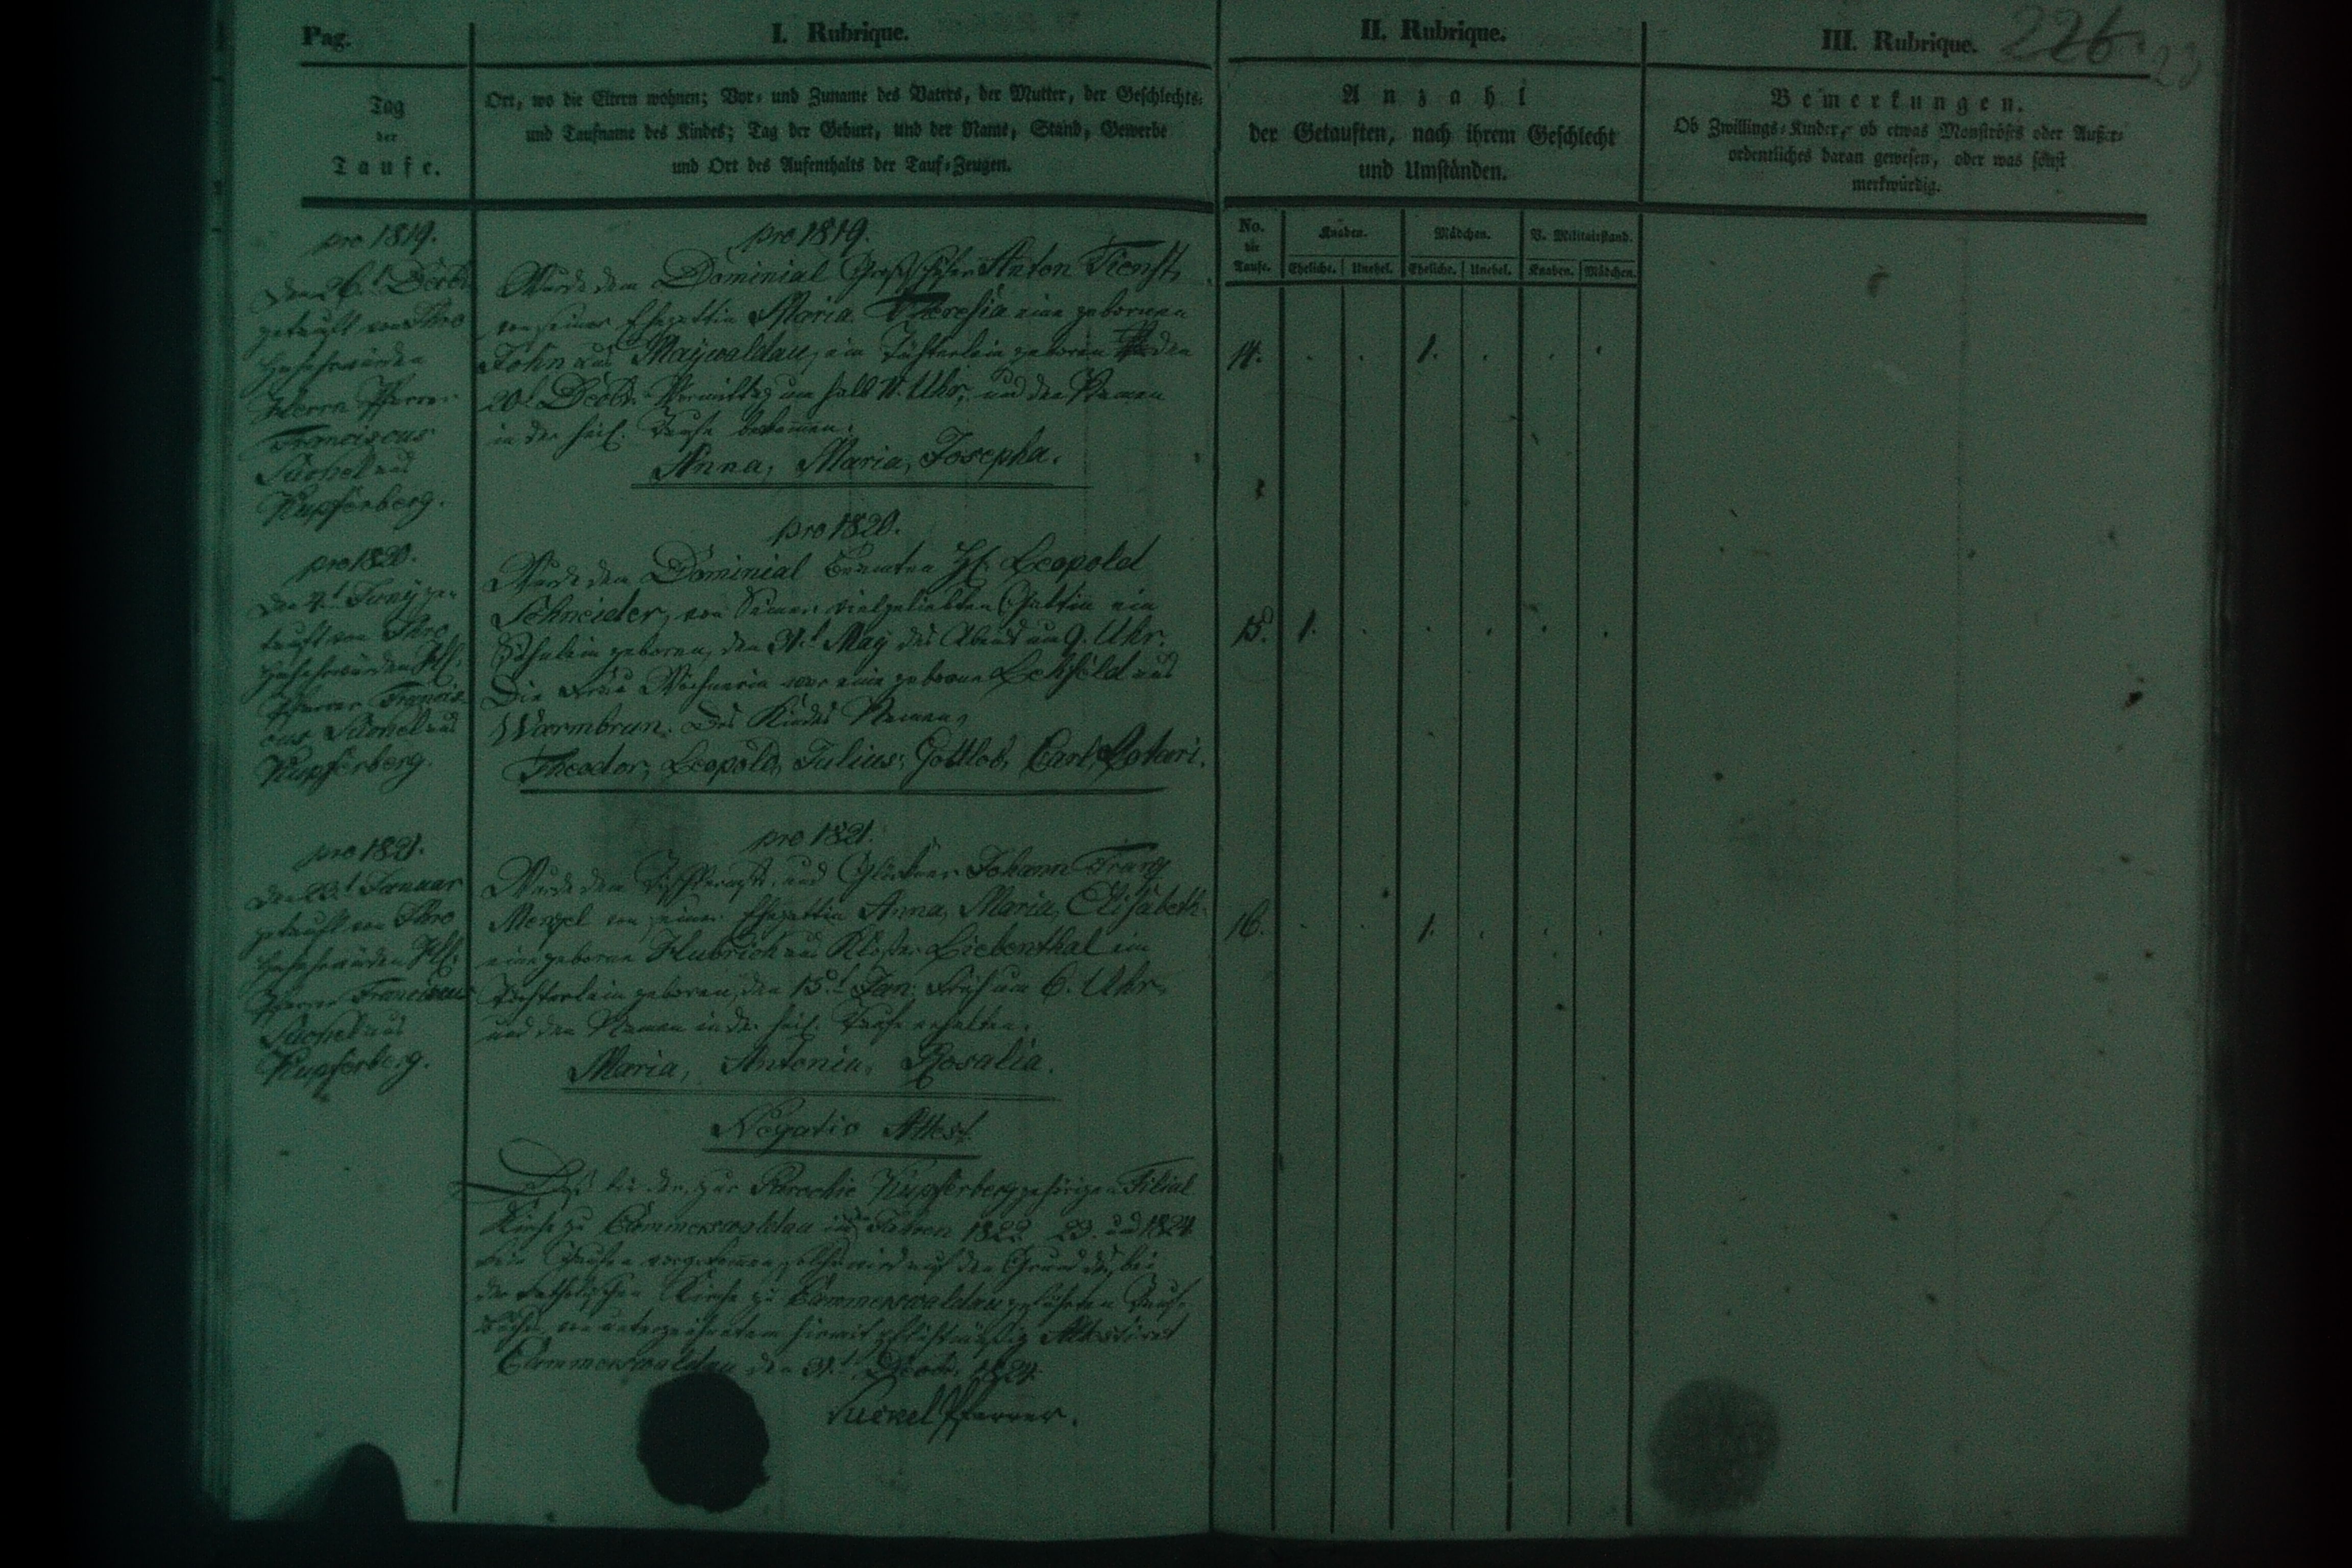 Pag.
I. Rubrique.
II. Rubrique.
III. Rubrique.
226.
23
Tag
der
Taufe.
Ort, wo die Eltern wohnen; Vor- und Zuname des Vaters, der Mutter, der Geschlechts-
und Taufname des Kindes; Tag der Geburt, und der Name, Stand, Gewerbe
und Ort des Aufenthalts der Tauf-Zeugen.
Anzahl
der Getauften, nach ihrem Geschlecht
und Umständen.
Bemerkungen.
Ob Zwillings-Kinder, ob etwas Monströses oder Außer-
ordentliches daran gewesen, oder was sonst
merkwürdig.
No.
die
Taufe.
Knaben.
Mädchen.
V. Militairstand.
Eheliche. Unehel. Eheliche. Unehel. Knaben. Mädchen.
pro 1819.
den 26t Decbr
getauft von Ihro
Hochehrwürden
Herrn Pfarrer
Franciscus
aus
Kupferberg.
pro 1819.
Wurde dem Dominial Anton
von seiner Ehegattin Maria Theresia eine geborene
John aus Maywaldau, ein Töchterlein geboren den
20t Decbr. Vormittag um halb 11. Uhr, und den Namen
in der heil. Taufe bekommen.
Anna, Maria, Josepha.
14. 1.
pro 1820.
den Juny ge-
tauft von Ihro
Hochehrwürden
Pfarrer Francis-
cus aus
Kupferberg.
pro 1820.
Wurde dem Dominial Beamten H. Leopold
Schneider, von seiner vielgeliebten Gattin ein
Söhnlein geboren, den 31t May des Abends um 9. Uhr.
Die Frau Wöchnerin war eine geborne aus
Warmbrun. Des Kindes Namen,
Theodor, Leopold, Julius, Gottlob, Carl,
15. 1.
pro 1821.
den Januar
getauft von Ihro
Hochehrwürden
Pfarrer Franciscus
aus
Kupferberg.
pro 1821.
Wurde dem und Glöckner Johann Franz
Menzel von seiner Ehegattin Anna, Maria, Elisabeth
eine geborne Hubrich aus Kloster Liebenthal ein
Töchterlein geboren, den 15t Jan: Früh um 6. Uhr,
und den Namen in der heil. Taufe erhalten.
Maria, Antonia, Rosalia.
16. 1.
Negativ Attest.
Daß bei der zur Parochie Kupferberg gehörigen Filial
Kirche zu Cammerswaldau in Jahren 1822 23. und 1824
kein Taufen vorgekommen, solches wird auf den Grund des bei
der katholischen Kirche zu Cammerswaldau geführten Tauf-
buchs von unterzeichnetem hiermit pflichtmäßig Attestiret
Cammerswaldau den 31t Decbr. 1824.
Pfarrer.